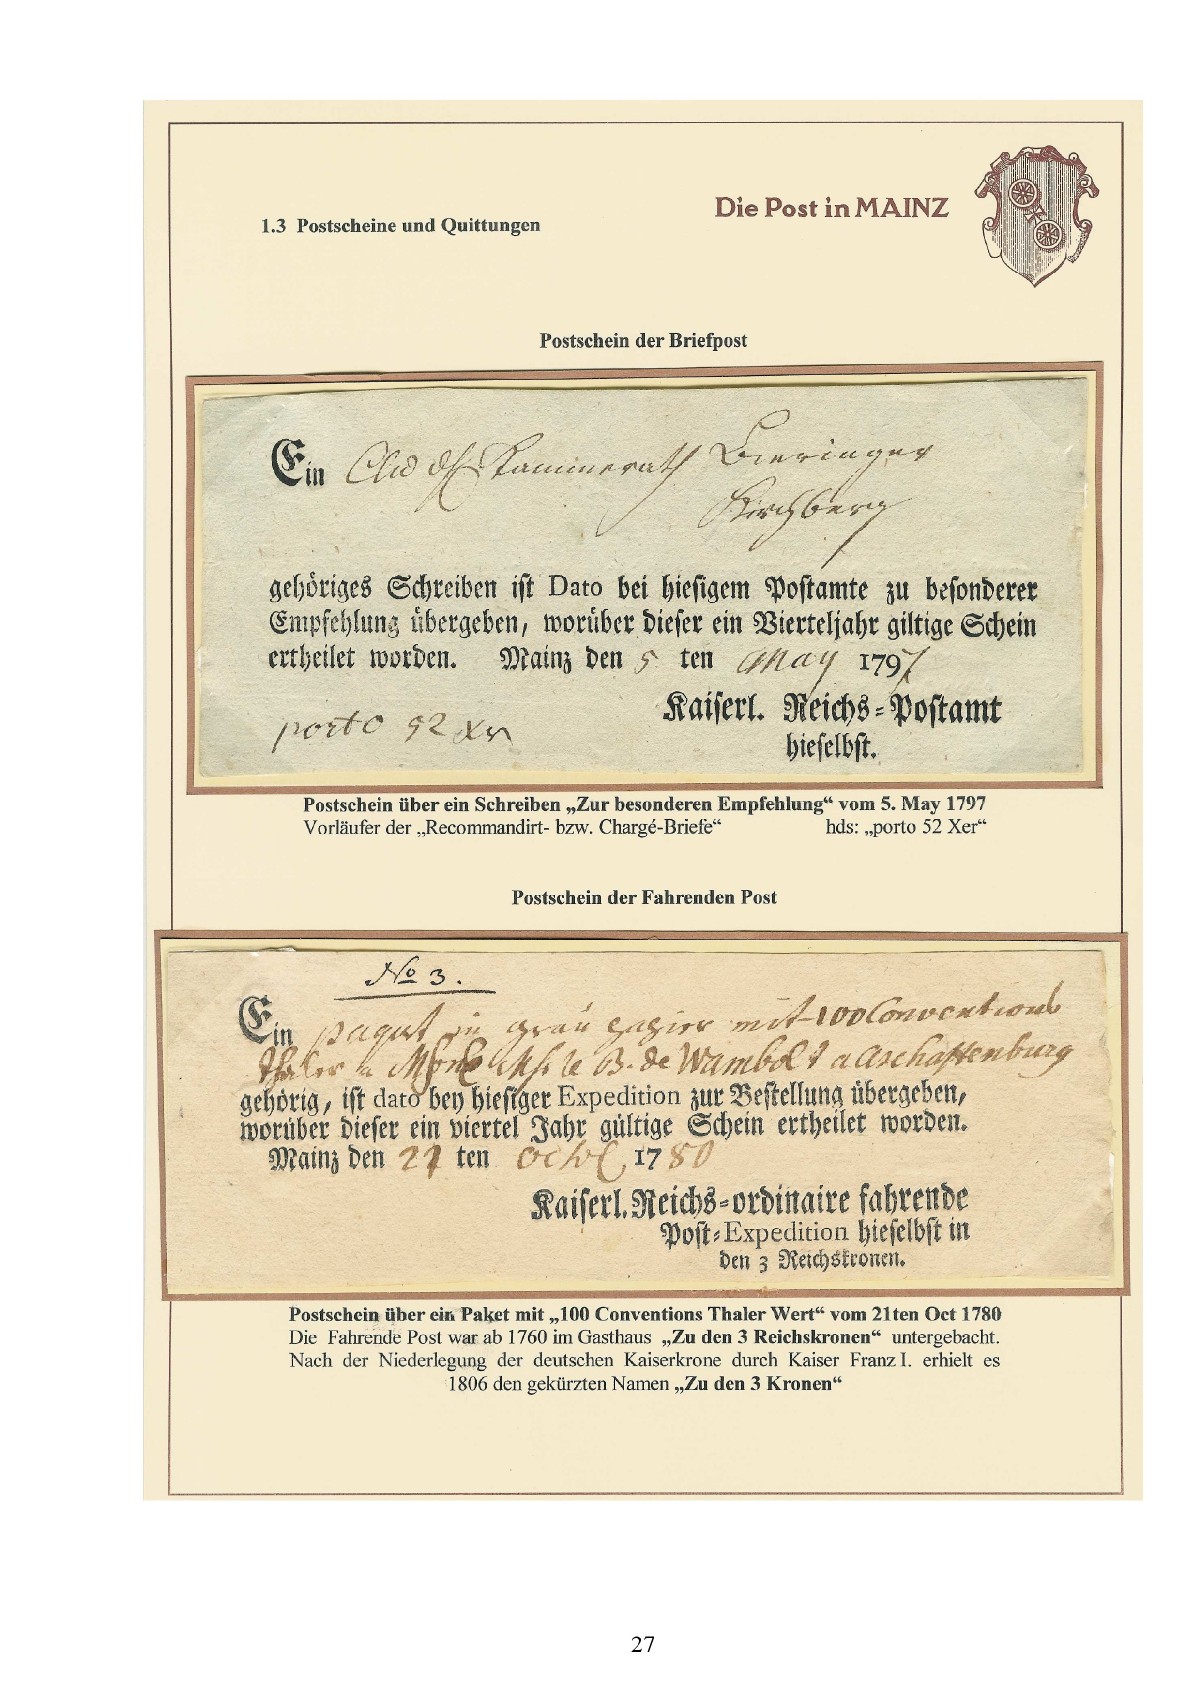 Die Post in MAINZ
1.3 Postscheine und Quittungen
Postschein der Briefpost
Ein Kammerrath Bieringer
Kirchberg
gehöriges Schreiben ist Dato bei hiesigem Postamte zu besonderer
Empfehlung übergeben, worüber dieser ein Vierteljahr giltige Schein
ertheilet worden. Mainz den 5 ten May 1797
Kaiserl. Reichs-Postamt
hieselbst.
porto 52 Xer
Postschein über ein Schreiben „Zur besonderen Empfehlung“ vom 5. May 1797
Vorläufer der „Recommandirt- bzw. Chargé-Briefe“ hds: „porto 52 Xer“
Postschein der Fahrenden Post
No 3.
Ein paquet in grau papier mit 100 Conventions
thaler a B. de Wambolt a aschaffenburg
gehörig, ist dato bey hiesiger Expedition zur Bestellung übergeben,
worüber dieser ein viertel Jahr gültige Schein ertheilet worden.
Mainz den 21 ten 1780
Kaiserl. Reichs-ordinaire fahrende
Post-Expedition hieselbst in
den 3 Reichskronen.
Postschein über ein Paket mit „100 Conventions Thaler Wert“ vom 21ten Oct 1780
Die Fahrende Post war ab 1760 im Gasthaus „Zu den 3 Reichskronen“ untergebacht.
Nach der Niederlegung der deutschen Kaiserkrone durch Kaiser Franz I. erhielt es
1806 den gekürzten Namen „Zu den 3 Kronen“
27